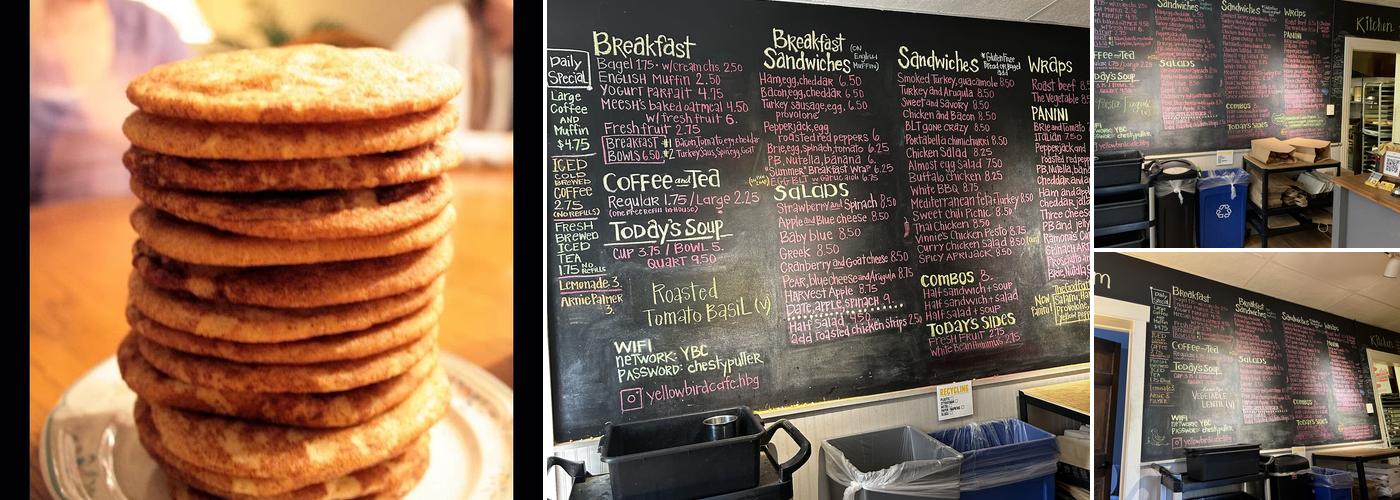 Daily
Special
Large
Coffee
AND
Muffin
$4.75
ICED
COLD
BREWED
COFFEE
2.75
(NO REFILLS)
FRESH
Brewed
ICED
TEA
1.75 NO REFILLS
Lemonade 3.
ArniePalmer
3.
Breakfast
Bagel 1.75 · w/cream chs. 2.50
ENGLISH Muffin 2.50
YOGURT PARFAIT 4.75
MEESH'S baked oatmeal 4.50
w/ fresh fruit 6.
Fresh fruit 2.75
Breakfast #1 Bacon, Tomato, egg, cheddar
BOWLS 6.50 #2 Turkey Saus, Spin, egg, Goat
Coffee and Tea
Regular 1.75 / Large 2.25
(one free refill in House)
Today's Soup
CUP 3.75 / BOWL 5.
QUART 9.50
Roasted
Tomato Basil (v)
WIFI
network: YBC
PASSWORD: chestypuller
yellowbirdcafe.hbg
Breakfast
Sandwiches (ON English Muffin)
Ham, egg, cheddar 6.50
Bacon, egg, cheddar 6.50
Turkey sausage, egg, 6.50
provolone
Pepperjack, egg
roasted red peppers 6.
Brie, egg, spinach, tomato 6.25
PB, Nutella, banana 6.
"Summer" Breakfast Wrap 6.25
EGG-ELT w/ Garlic aioli 6.75
SALADS
Strawberry and Spinach 8.50
Apple and Blue cheese 8.50
Baby blue 8.50
Greek 8.50
Cranberry and Goat cheese 8.50
Pear, blue cheese and Arugula 8.75
Harvest Apple 8.75
Date, apple, spinach 9.
Half Salad 4.50
add roasted chicken strips 2.50
Sandwiches *Gluten Free Bread or Bagel add
Smoked Turkey, guacamole 8.50
Turkey and Arugula 8.50
Sweet and Savory 8.50
Chicken and Bacon 8.50
BLT gone crazy 8.50
Portabella chimichurri 8.50
Chicken Salad 8.25
Almost egg Salad 7.50
Buffalo chicken 8.25
White BBQ 8.75
Mediterranean feta Turkey 8.50
Sweet chili Picnic 8.50
Thai Chicken 8.50
Vinnie's Chicken Pesto 8.75
Curry Chicken Salad 8.50
SPICY APRIJACK 8.50
COMBOS 8.
Half sandwich + soup
Half sandwich + salad
Half salad + soup
TODAY'S SIDES
FRESH FRUIT 2.75
White Bean Hummus 2.75
WRAPS
Roast beef 8.5
The Vegetable 8.5
PANINI
Brie and Tomato
Italian 7.50
Pepperjack and
roasted red pepp
PB, Nutella, ban
Cheddar and a
Ham and app
Chicken and
Three cheese
PB and jelly
Ramona's Cu
Spinach Art
Prosciutto an
Brie, Nutella, S
Now
Panini
The Godfath
Salami, Ha
Provolone,
RECYCLING
Sandwiches
WRAPS
PANINI
Kitchen
SALADS
Today's Soup
WIFI
COMBOS
TODAY'S SIDES
Daily
Special
Breakfast
Breakfast
Sandwiches
Sandwiches
Wraps
Coffee and Tea
Today's Soup
VEGETABLE
LENTIL (V)
SALADS
COMBOS
TODAY'S SIDES
WIFI
network: YBC
PASSWORD: chestypuller
yellowbirdcafe.hbg